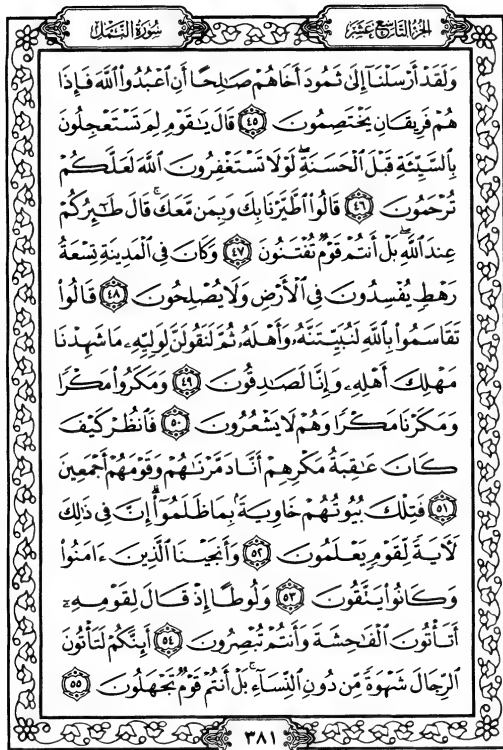 الجزء التاسع عشر
سورة النمل
وَلَقَدْ أَرْسَلْنَآ إِلَىٰ ثَمُودَ أَخَاهُمْ صَٰلِحًا أَنِ ٱعْبُدُوا۟ ٱللَّهَ فَإِذَا
هُمْ فَرِيقَانِ يَخْتَصِمُونَ ٤٥ قَالَ يَٰقَوْمِ لِمَ تَسْتَعْجِلُونَ
بِٱلسَّيِّئَةِ قَبْلَ ٱلْحَسَنَةِۖ لَوْلَا تَسْتَغْفِرُونَ ٱللَّهَ لَعَلَّكُمْ
تُرْحَمُونَ ٤٦ قَالُوا۟ ٱطَّيَّرْنَا بِكَ وَبِمَن مَّعَكَۚ قَالَ طَٰٓئِرُكُمْ
عِندَ ٱللَّهِۖ بَلْ أَنتُمْ قَوْمٌ تُفْتَنُونَ ٤٧ وَكَانَ فِى ٱلْمَدِينَةِ تِسْعَةُ
رَهْطٍ يُفْسِدُونَ فِى ٱلْأَرْضِ وَلَا يُصْلِحُونَ ٤٨ قَالُوا۟
تَقَاسَمُوا۟ بِٱللَّهِ لَنُبَيِّتَنَّهُۥ وَأَهْلَهُۥ ثُمَّ لَنَقُولَنَّ لِوَلِيِّهِۦ مَا شَهِدْنَا
مَهْلِكَ أَهْلِهِۦ وَإِنَّا لَصَٰدِقُونَ ٤٩ وَمَكَرُوا۟ مَكْرًا
وَمَكَرْنَا مَكْرًا وَهُمْ لَا يَشْعُرُونَ ٥٠ فَٱنظُرْ كَيْفَ
كَانَ عَٰقِبَةُ مَكْرِهِمْ أَنَّا دَمَّرْنَٰهُمْ وَقَوْمَهُمْ أَجْمَعِينَ
٥١ فَتِلْكَ بُيُوتُهُمْ خَاوِيَةًۢ بِمَا ظَلَمُوٓا۟ۗ إِنَّ فِى ذَٰلِكَ
لَءَايَةً لِّقَوْمٍ يَعْلَمُونَ ٥٢ وَأَنجَيْنَا ٱلَّذِينَ ءَامَنُوا۟
وَكَانُوا۟ يَتَّقُونَ ٥٣ وَلُوطًا إِذْ قَالَ لِقَوْمِهِۦٓ
أَتَأْتُونَ ٱلْفَٰحِشَةَ وَأَنتُمْ تُبْصِرُونَ ٥٤ أَئِنَّكُمْ لَتَأْتُونَ
ٱلرِّجَالَ شَهْوَةً مِّن دُونِ ٱلنِّسَآءِۚ بَلْ أَنتُمْ قَوْمٌ تَجْهَلُونَ ٥٥
٣٨١